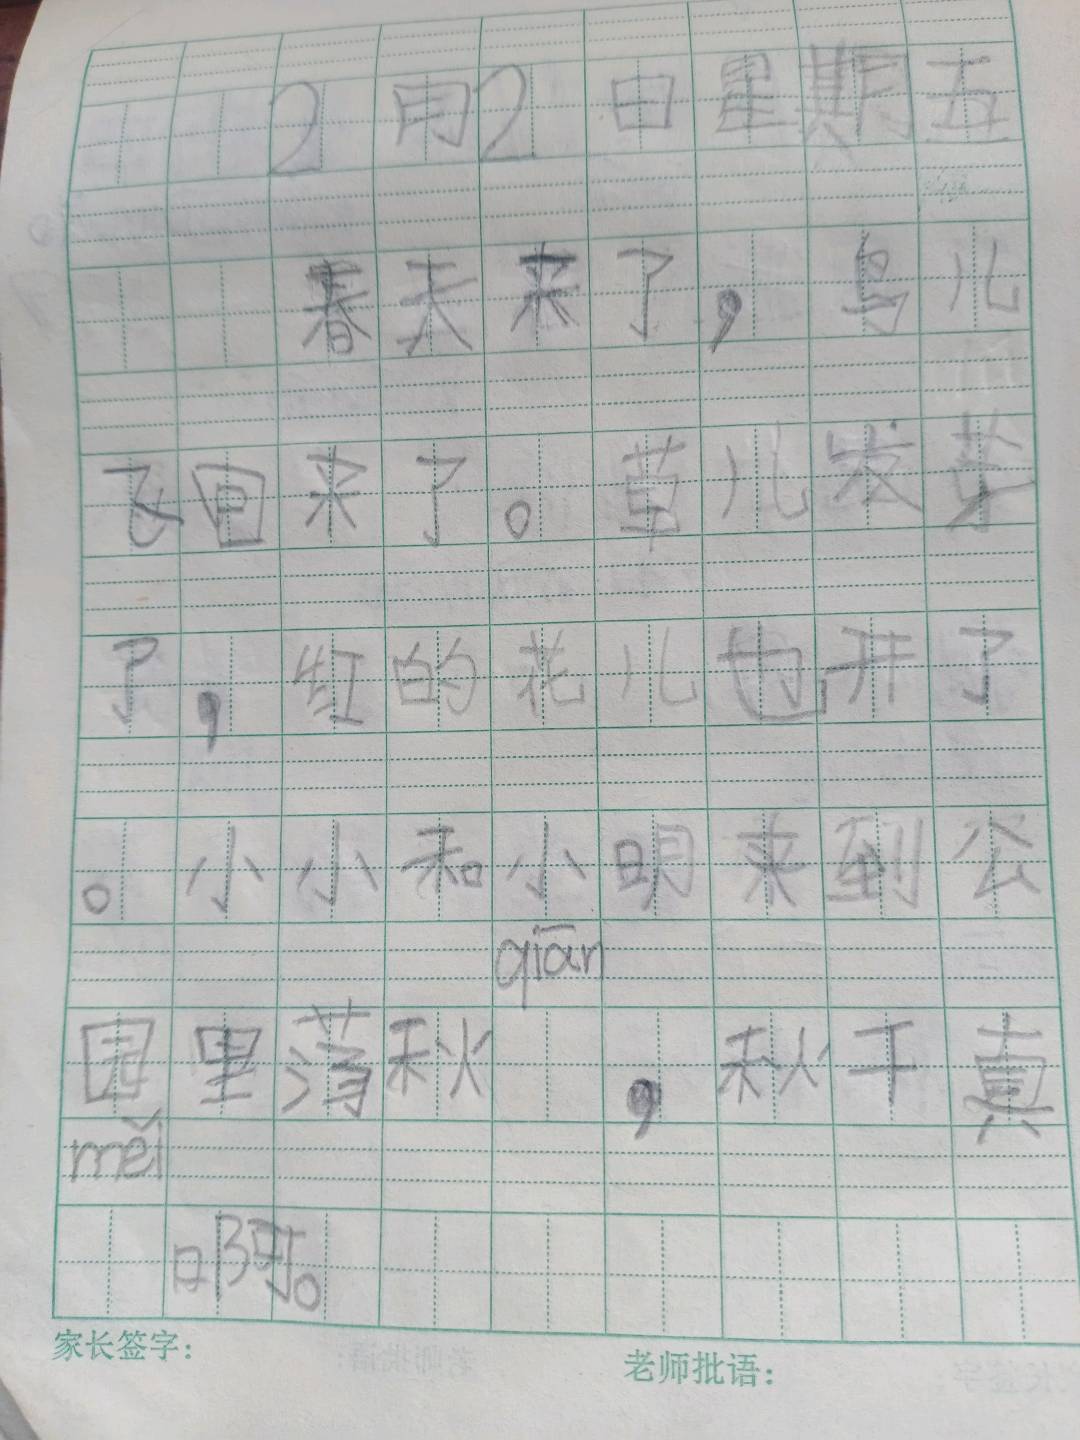 2月2日星期五
春天来了，鸟儿
飞回来了。草儿发芽
了，红的花儿也开了
。小小和小明来到公
qiān
园里荡秋 ，秋千真
měi
啊。
家长签字： 老师批语：